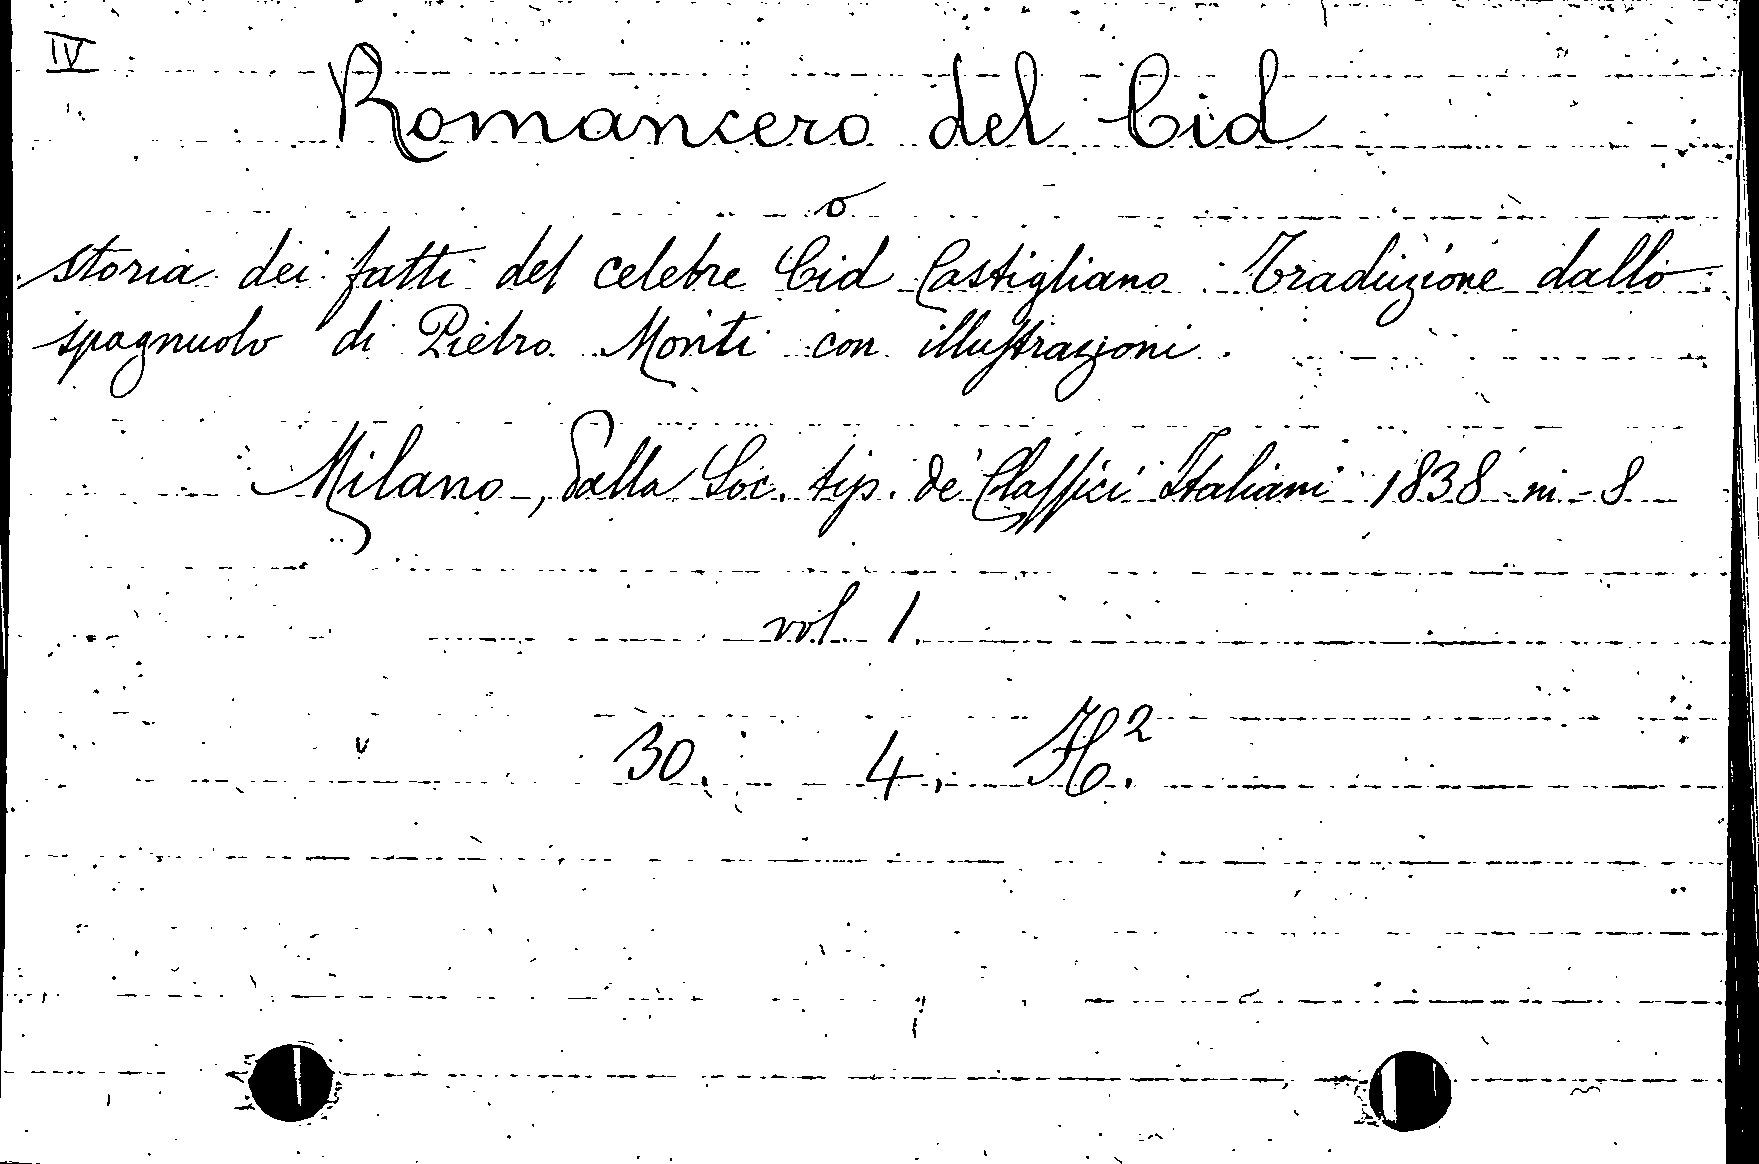 IV
Romancero del Cid
o
storia dei fatti del celebre Cid Castigliano. Traduzione dallo
spagnuolo di Pietro Monti con illustrazioni.
Milano, dalla Soc. tip. de' Classici Italiani 1838 in-8
vol. 1.
30. 4. H.²